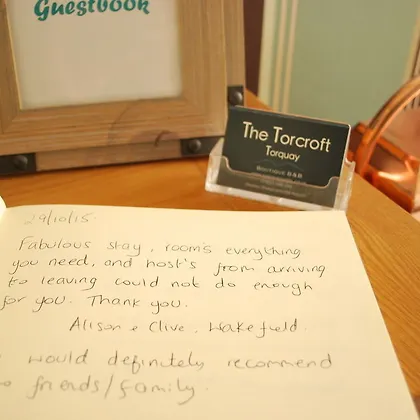 Guestbook
The Torcroft
Torquay
Boutique B&B
29/10/15.
Fabulous stay, room's everything
you need, and host's from arriving
to leaving could not do enough
for you. Thank you.
Alison & Clive, Wakefield.
would definitely recommend
to friends/family.